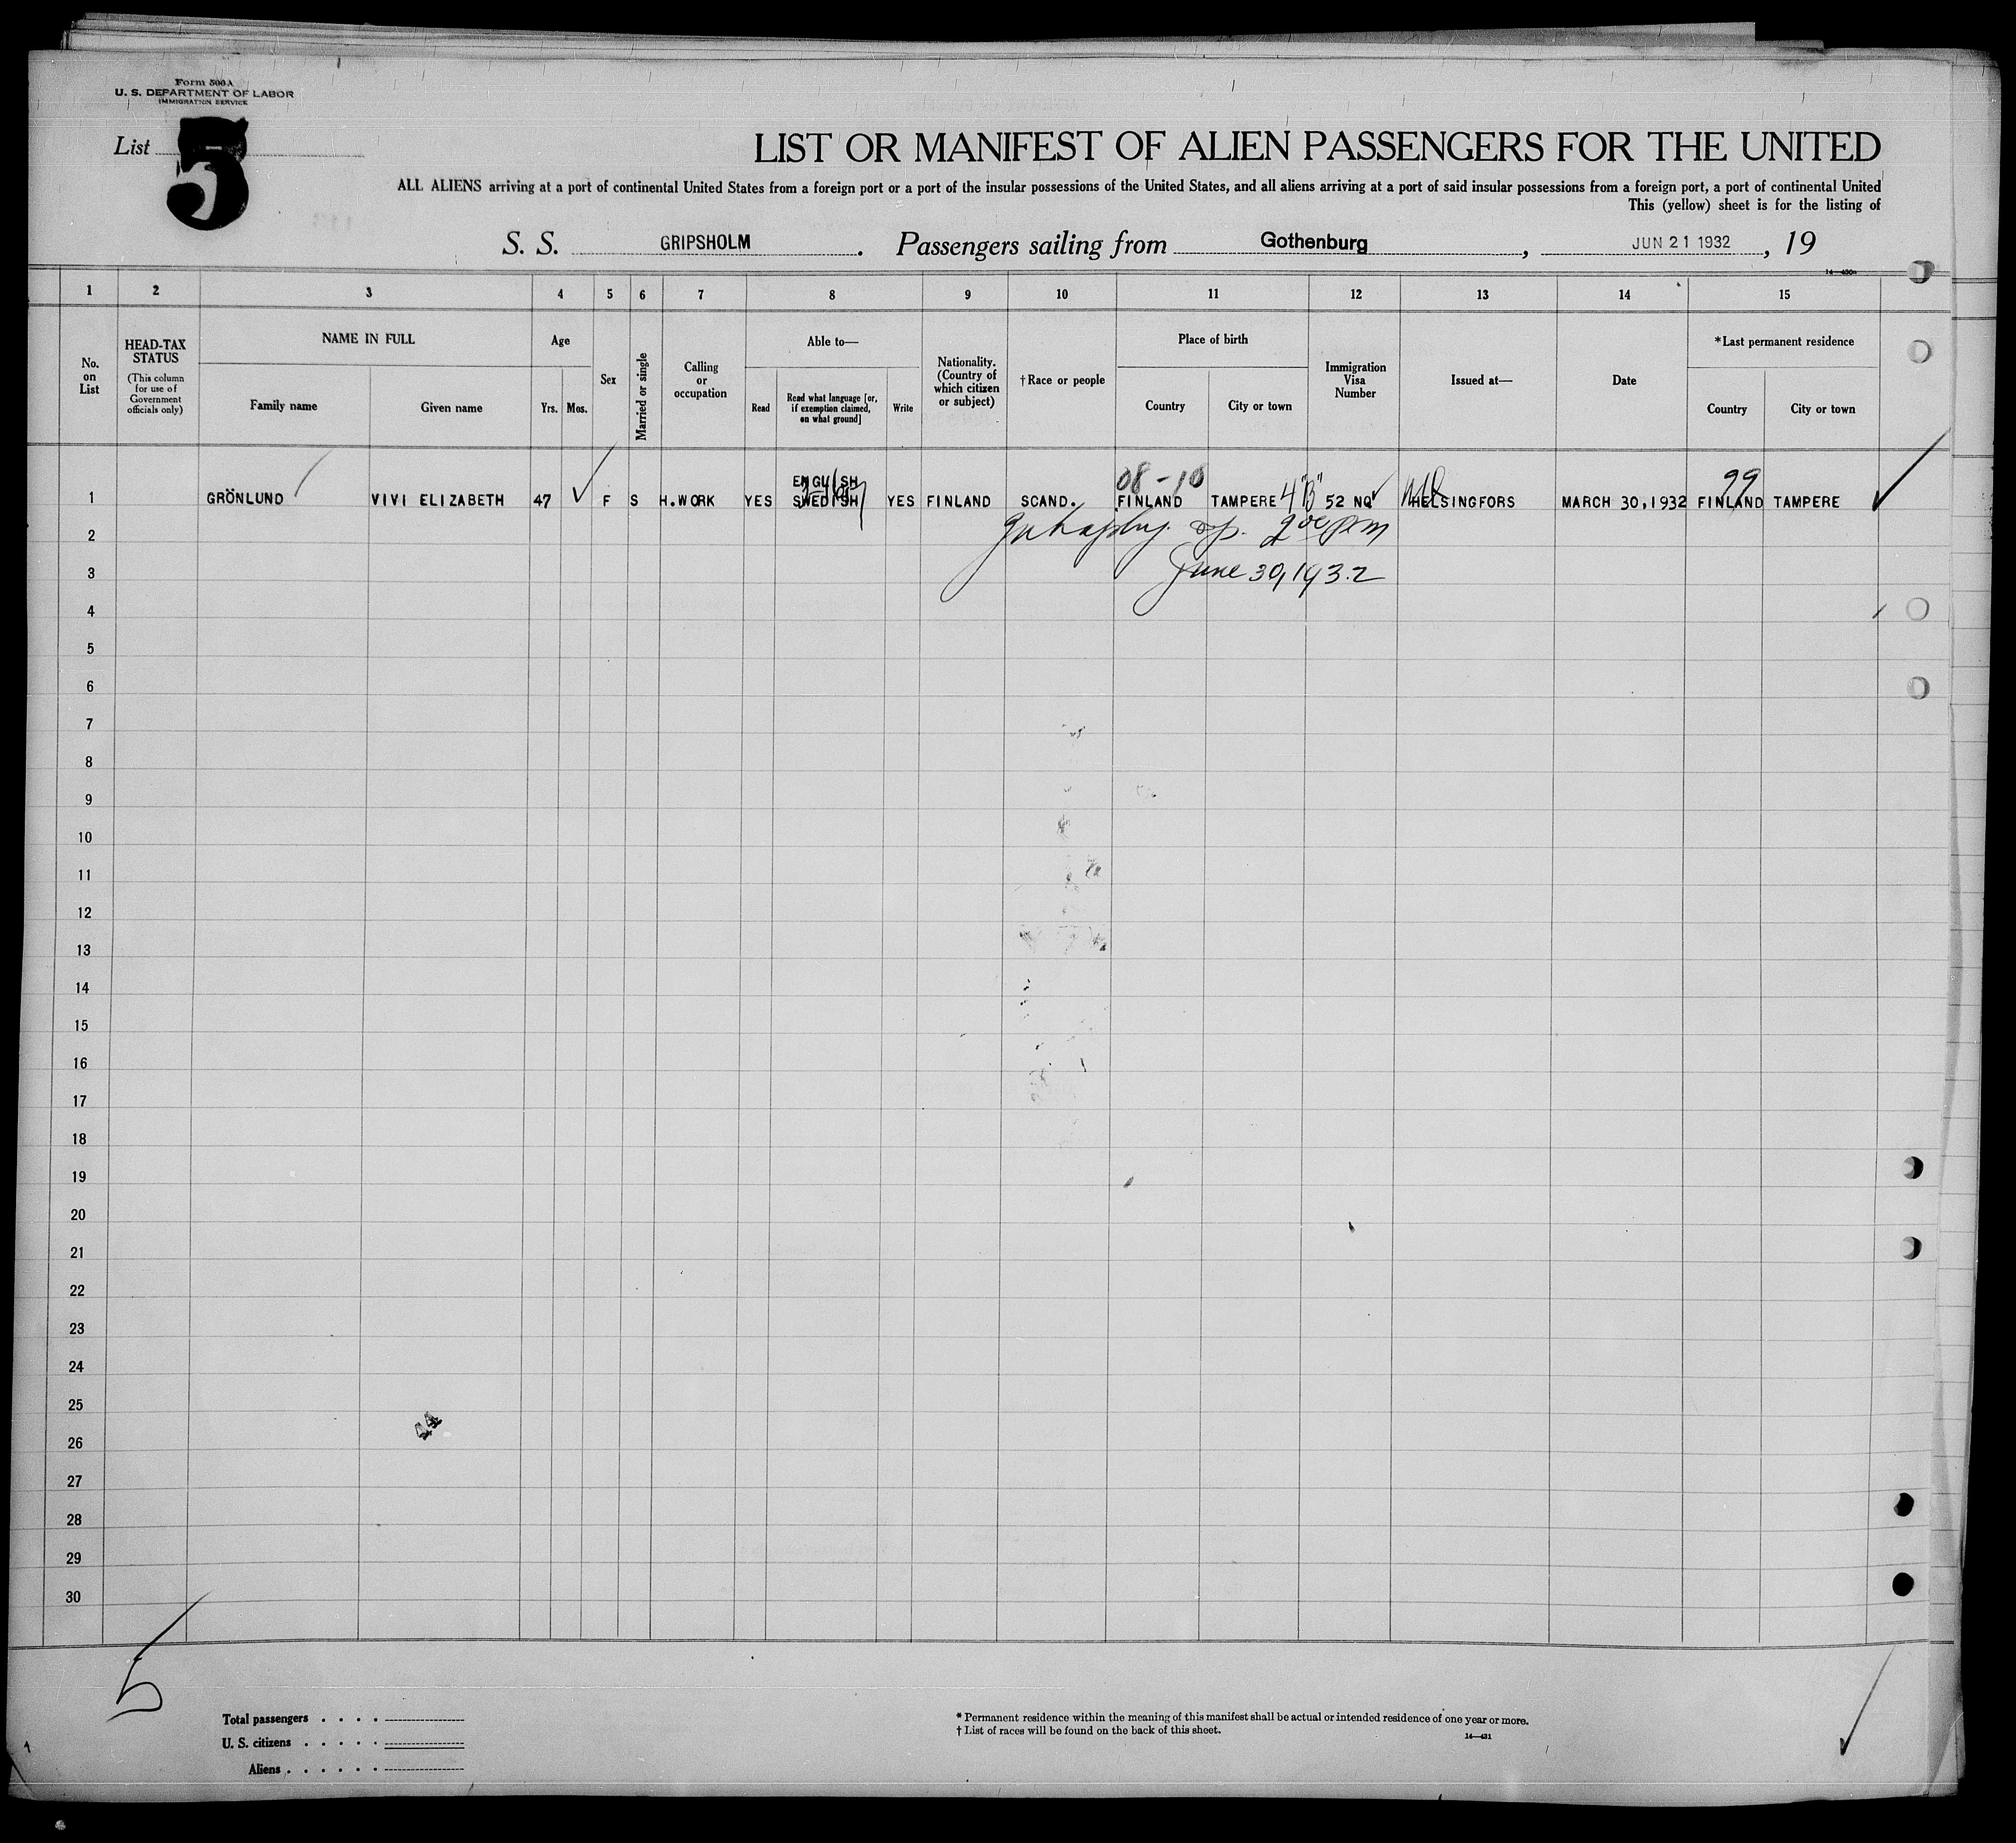 Form 500 A
U. S. DEPARTMENT OF LABOR
IMMIGRATION SERVICE
List 5
LIST OR MANIFEST OF ALIEN PASSENGERS FOR THE UNITED
ALL ALIENS arriving at a port of continental United States from a foreign port or a port of the insular possessions of the United States, and all aliens arriving at a port of said insular possessions from a foreign port, a port of continental United
This (yellow) sheet is for the listing of
S. S. GRIPSHOLM. Passengers sailing from Gothenburg, JUN 21 1932, 19
1 2 3 4 5 6 7 8 9 10 11 12 13 14 15
No. on List
HEAD-TAX STATUS
(This column for use of Government officials only)
NAME IN FULL
Family name Given name
Age
Yrs. Mos.
Sex
Married or single
Calling or occupation
Able to—
Read
Read what language [or, if exemption claimed, on what ground]
Write
Nationality. (Country of which citizen or subject)
† Race or people
Place of birth
Country City or town
Immigration Visa Number
Issued at—
Date
*Last permanent residence
Country City or town
08-10 99
ENGLISH
1 GRÖNLUND VIVI ELIZABETH 47 F S H.WORK YES SWEDISH YES FINLAND SCAND. FINLAND TAMPERE 4"B" 52 NQ HELSINGFORS MARCH 30,1932 FINLAND TAMPERE
2 2 00 pm
3 June 30, 1932
4
5
6
7
8
9
10
11
12
13
14
15
16
17
18
19
20
21
22
23
24
25
26
27
28
29
30
5
Total passengers . . . .
U. S. citizens . . . . .
Aliens . . . . . .
* Permanent residence within the meaning of this manifest shall be actual or intended residence of one year or more.
† List of races will be found on the back of this sheet.
14—431